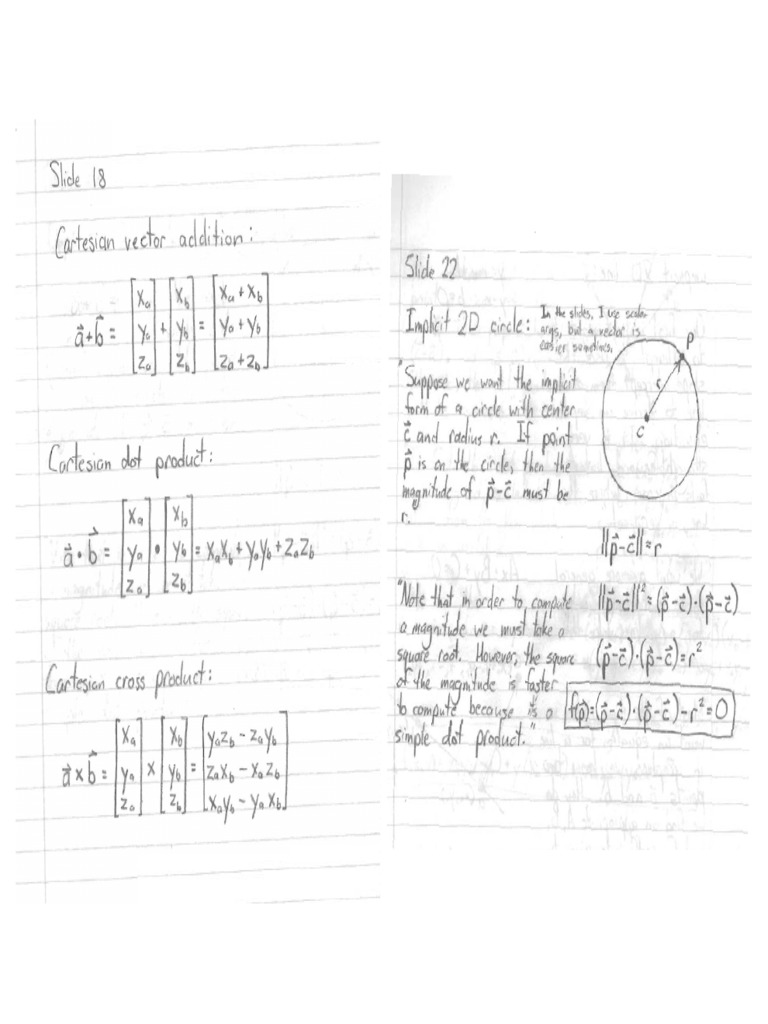 Slide 18
Cartesian vector addition:
a⃗+b⃗ = [xa ya za] + [xb yb zb] = [xa+xb ya+yb za+zb]
Cartesian dot product:
a⃗•b⃗ = [xa ya za] • [xb yb zb] = xaxb+yayb+zazb
Cartesian cross product:
a⃗×b⃗ = [xa ya za] × [xb yb zb] = [yazb−zayb zaxb−xazb xayb−yaxb]
Slide 22
Implicit 2D circle:
In the slides, I use scalar
args, but a vector is
easier sometimes.
"Suppose we want the implicit
form of a circle with center
c⃗ and radius r. If point
p⃗ is on the circle, then the
magnitude of p⃗-c⃗ must be
r."
P
r
C
||p⃗-c⃗||=r
"Note that in order to compute
a magnitude we must take a
square root. However, the square
of the magnitude is faster
to compute because is a
simple dot product."
||p⃗-c⃗||²=(p⃗-c⃗)·(p⃗-c⃗)
(p⃗-c⃗)·(p⃗-c⃗)=r²
f(p⃗)=(p⃗-c⃗)·(p⃗-c⃗)-r²=0